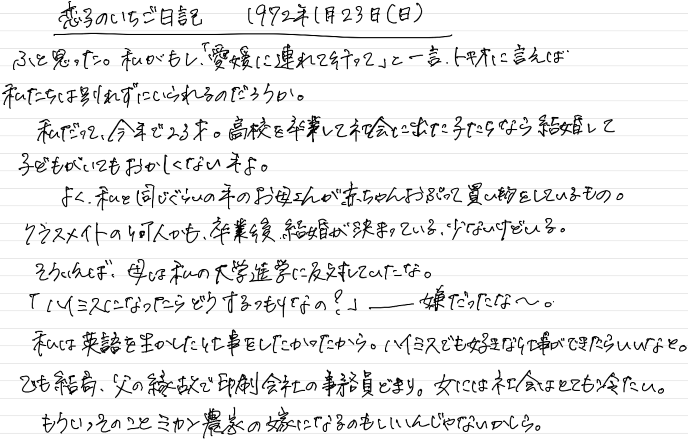 恋子のいちご日記 1972年1月23日(日)
ふと思った。私がもし、「愛媛に連れて行って」と一言、トオルに言えば
私たちは別れずにいられるのだろうか。
私だって、今年で23才。高校を卒業して社会に出た子たちなら結婚して
子どもがいてもおかしくない年よ。
よく、私と同じぐらいの年のお母さんが赤ちゃんおぶって買い物をしているもの。
クラスメイトの何人かも、卒業後、結婚が決まっている、少ないけどいる。
そういえば、母は私の大学進学に反対していたな。
「ハイミスになったらどうするつもりなの?」――嫌だったな〜。
私は英語を生かした仕事をしたかったから。ハイミスでも好きな仕事ができたらいいなと。
でも結局、父の縁故で印刷会社の事務員どまり。女には社会はとても冷たい。
もういっそのことミカン農家の嫁になるのもいいんじゃないかしら。